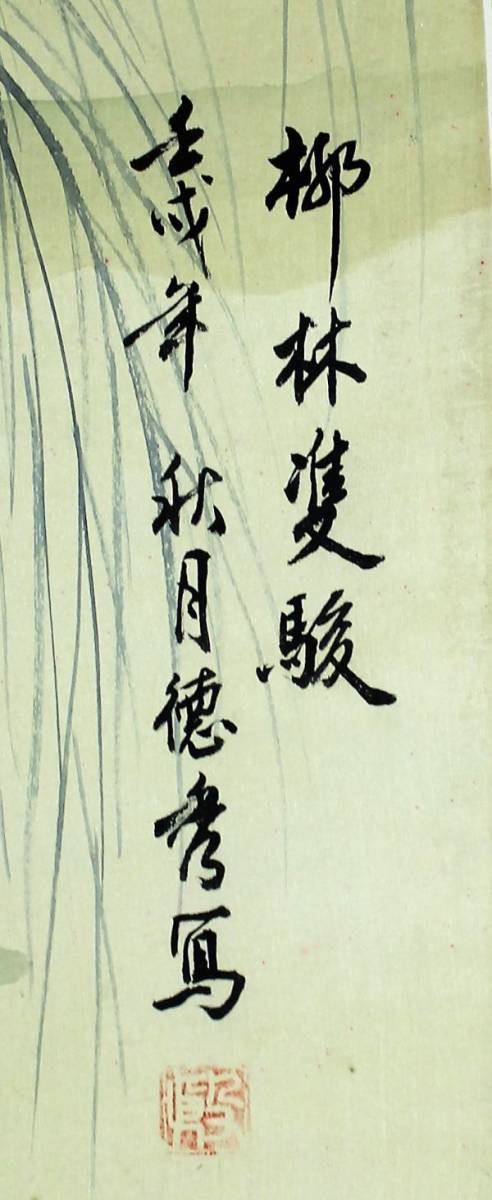 柳林雙駿
壬戌年 秋月德秀寫